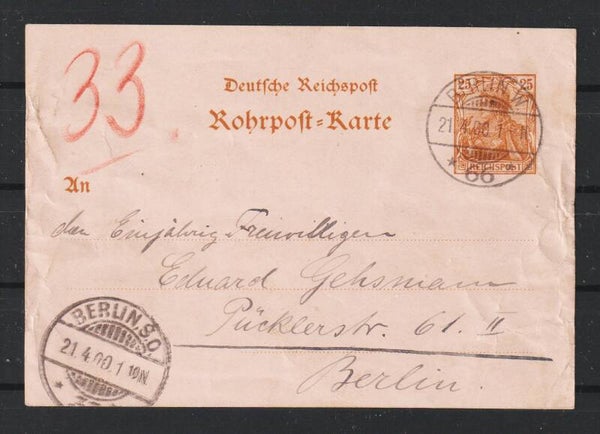 33
Deutsche Reichspost
Rohrpost=Karte
An
25 25
REICHSPOST
BERLIN, W
21. 4. 00. 1
* 66
den Einjährig Freiwilligen
Eduard Gehsmann
Pücklerstr. 61. II
Berlin.
BERLIN, S.O.
21. 4. 00. 1 10N
*